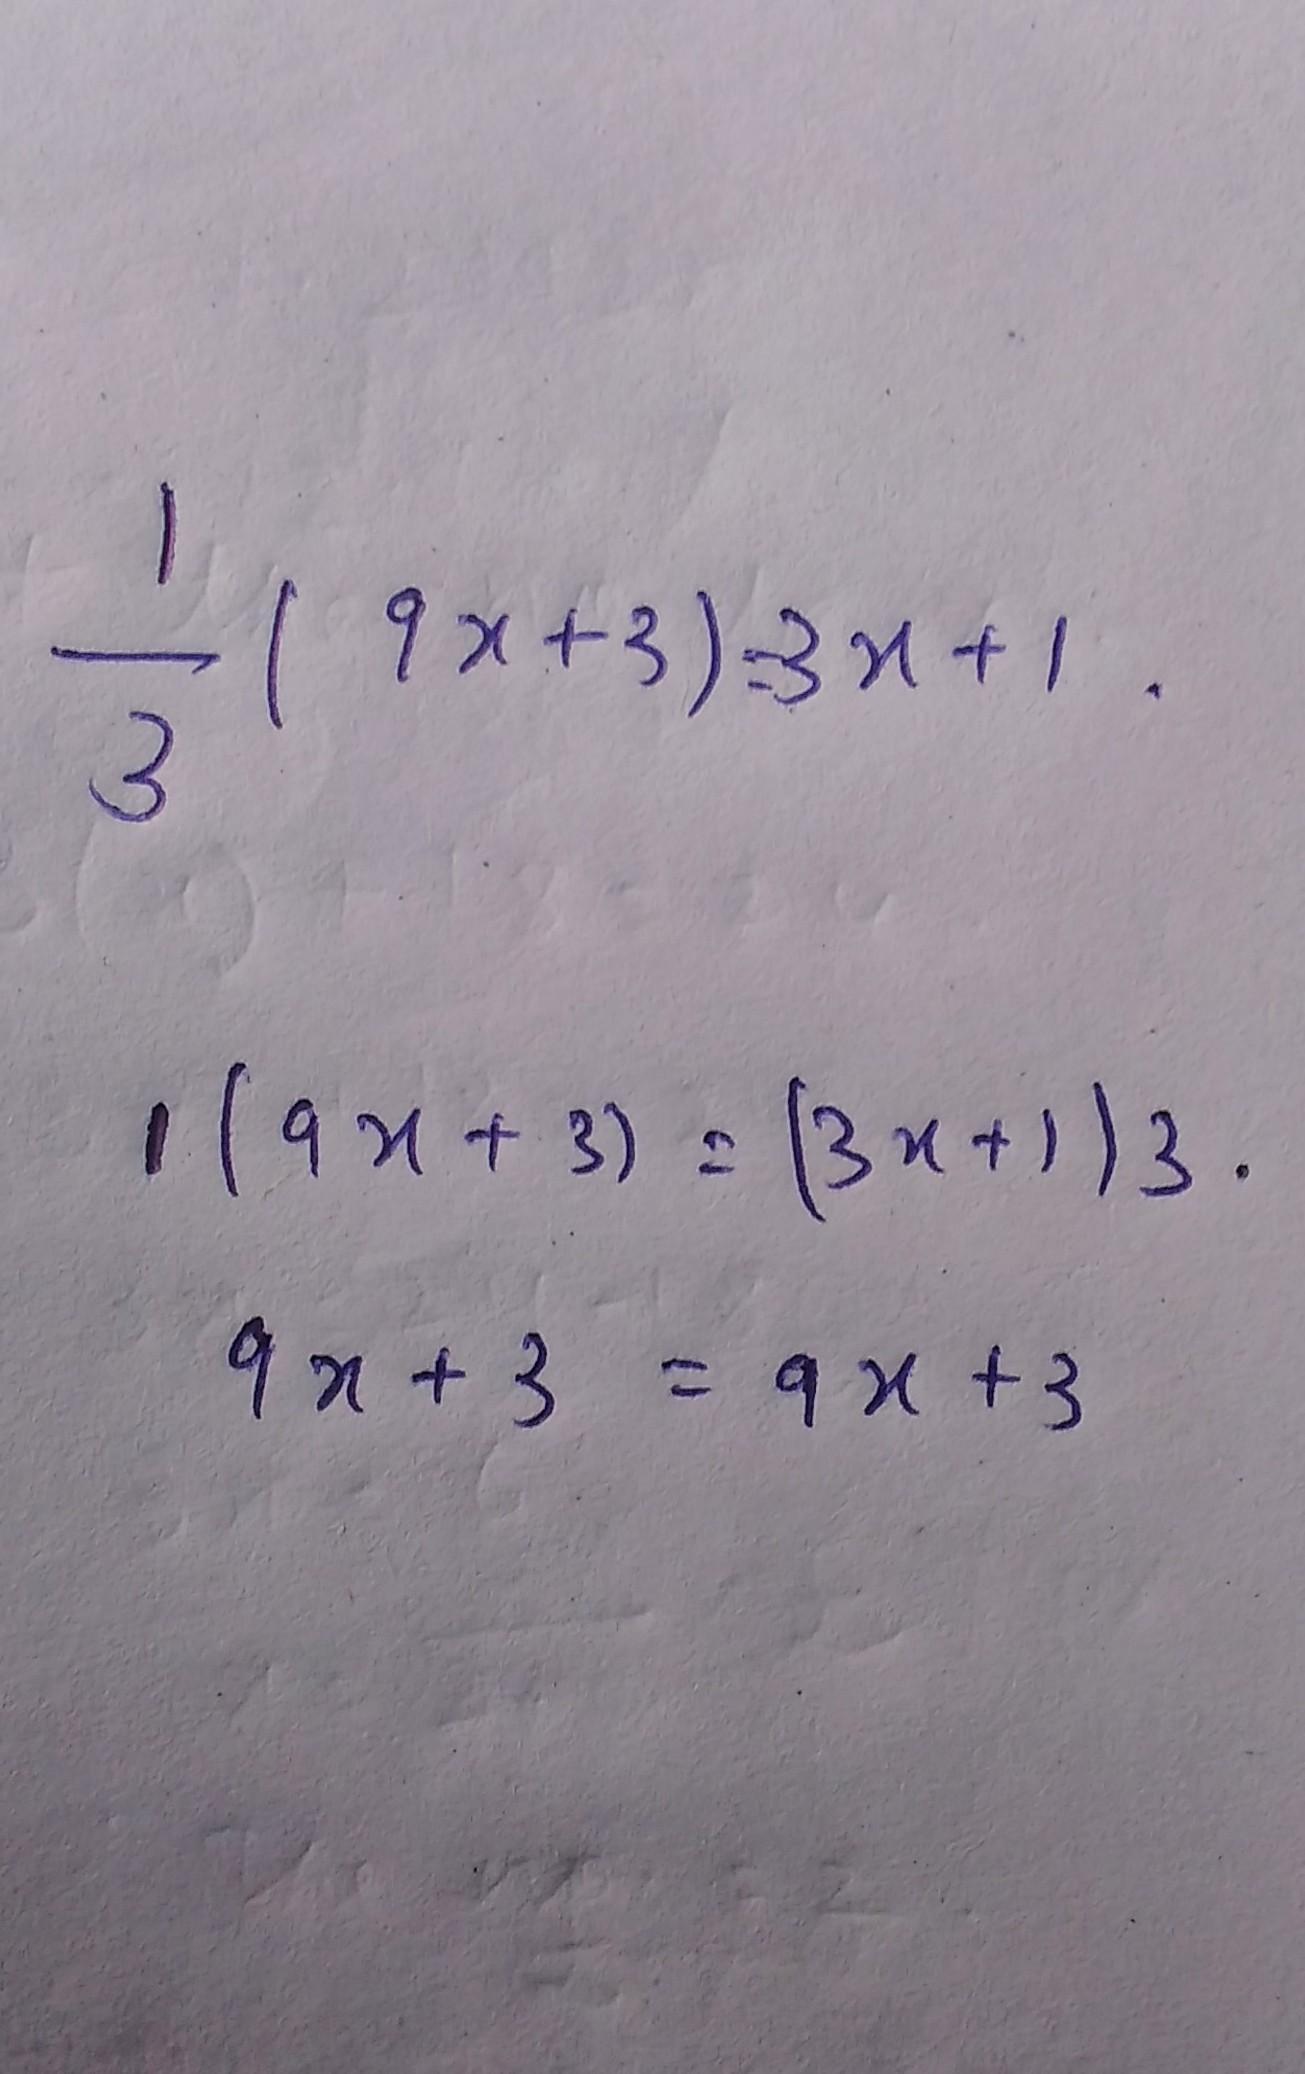 1/3 ( 9x+3)=3x+1.
1(9x+3) = (3x+1)3.
9x+3 = 9x+3